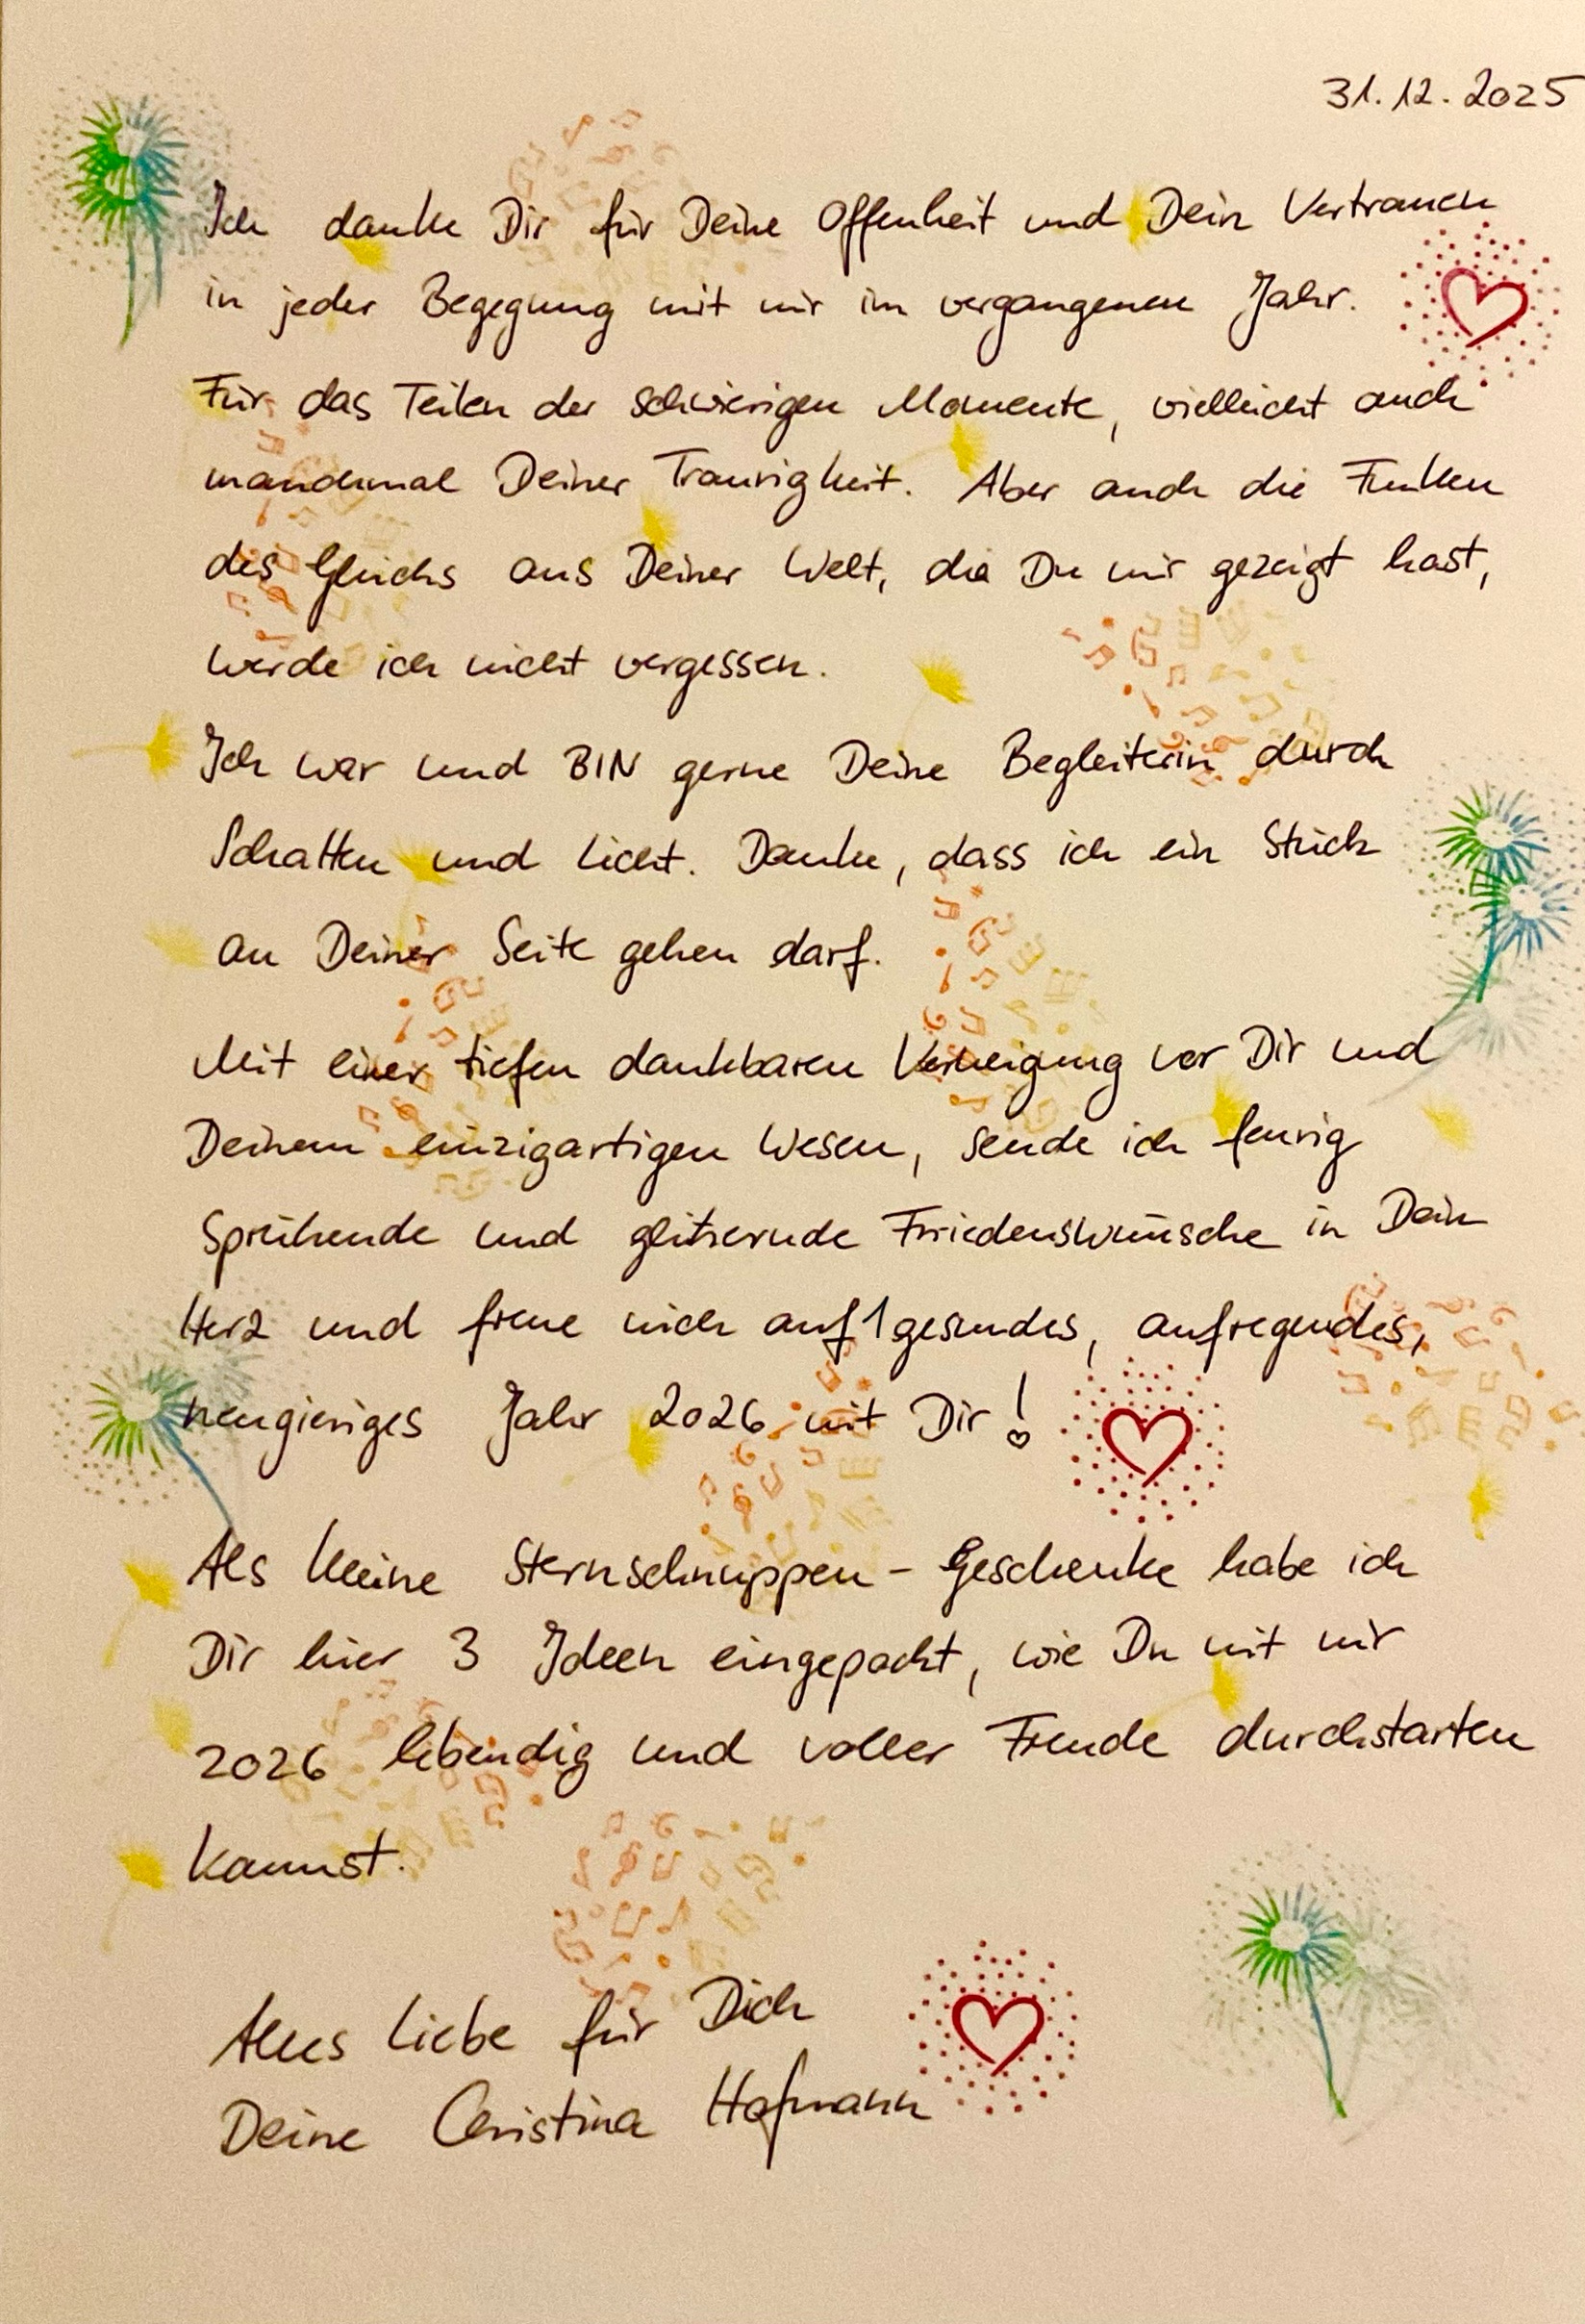 31.12.2025
Ich danke Dir für Deine Offenheit und Dein Vertrauen
in jeder Begegung mit mir im vergangenen Jahr.
Für das Teilen der schwierigen Momente, vielleicht auch
manchmal Deiner Traurigkeit. Aber auch die Funken
des Glücks aus Deiner Welt, die Du mir gezeigt hast,
werde ich nicht vergessen.
Ich war und BIN gerne Deine Begleiterin durch
Schatten und Licht. Danke, dass ich ein Stück
an Deiner Seite gehen darf.
Mit einer tiefen dankbaren Verneigung vor Dir und
Deinem einzigartigen Wesen, sende ich feurig
Sprühende und glitzernde Friedenswünsche in Dein
Herz und freue mich auf 1 gesundes, aufregendes,
neugieriges Jahr 2026 mit Dir!
Als kleine Sternschnuppen - Geschenke habe ich
Dir hier 3 Ideen eingepackt, wie Du mit mir
2026 lebendig und voller Freude durchstarten
kannst.
Alles Liebe für Dich
Deine Christina Hofmann